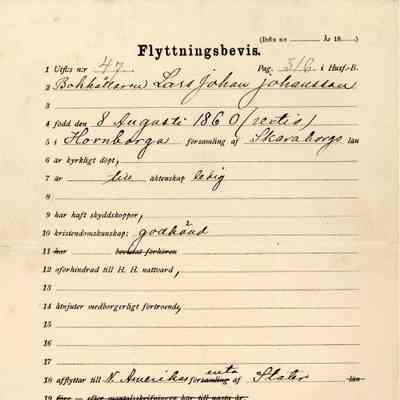 (Infln nr ——— År 18——.)
Flyttningsbevis.
1 Utfl:s n:r 47. Pag. 316 i Husf.-B.
2 Bokhållaren Lars Johan Johansson
3
4 född den 8 Augusti 1860 (sextio)
5 i Hornborga församling af Skaraborgs län
6 är kyrkligt döpt,
7 är till äktenskap ledig
8
9 har haft skyddskoppor,
10 kristendomskunskap: godkänd
11 har bevistat förhören
12 oförhindrad till H. H. nattvard,
13
14 åtnjuter medborgerligt förtroende,
15
16
17
18 afflyttar till N. Amerikas församling enta af Stater län
19 före — efter mantalsskrifningen har till nästa år.